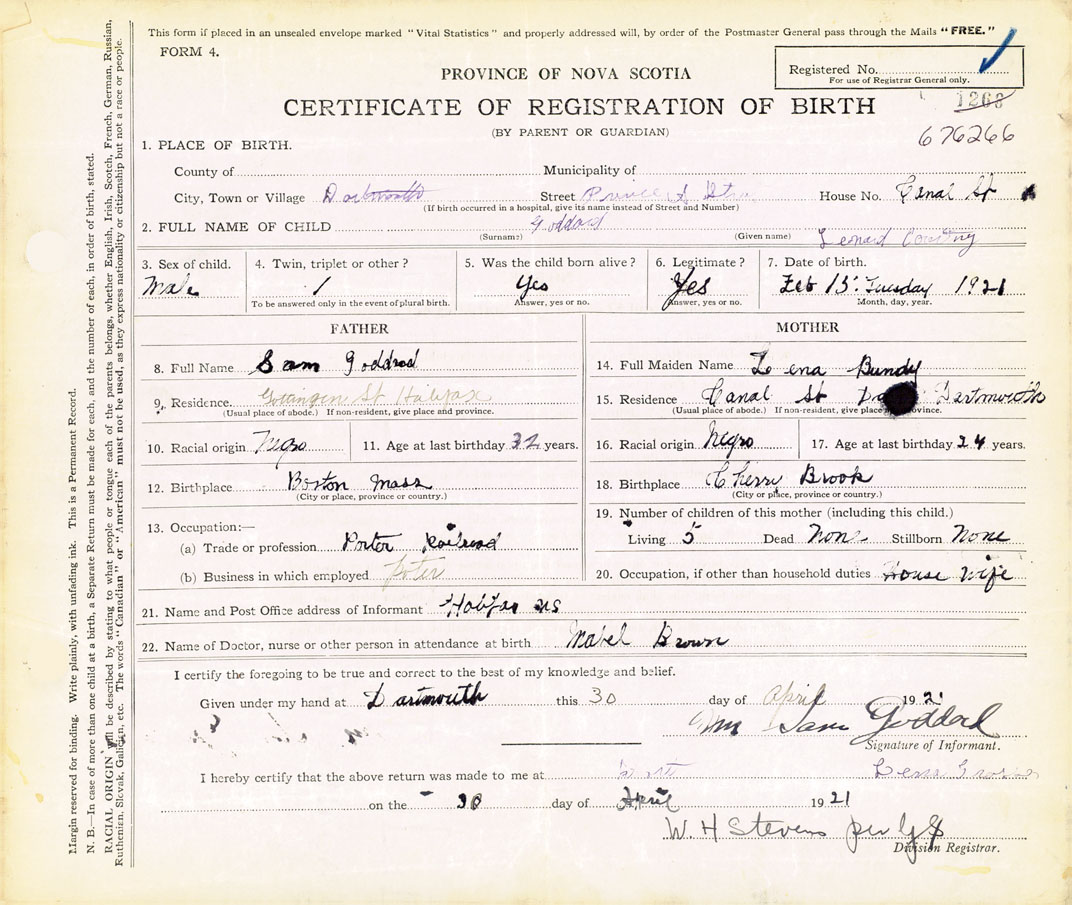 This form if placed in an unsealed envelope marked "Vital Statistics" and properly addressed will, by order of the Postmaster General pass through the Mails "FREE."
FORM 4.
PROVINCE OF NOVA SCOTIA
Registered No.
For use of Registrar General only.
CERTIFICATE OF REGISTRATION OF BIRTH
1263
(BY PARENT OR GUARDIAN)
676266
1. PLACE OF BIRTH.
County of Municipality of
City, Town or Village Dartmouth Street House No. Canal St
(If birth occurred in a hospital, give its name instead of Street and Number)
2. FULL NAME OF CHILD Goddard Leonard
(Surname) (Given name)
3. Sex of child. 4. Twin, triplet or other? 5. Was the child born alive? 6. Legitimate? 7. Date of birth.
Male 1 Yes Yes Feb 15 Tuesday 1921
To be answered only in the event of plural birth. Answer, yes or no. Answer, yes or no. Month, day, year.
FATHER
8. Full Name Sam Goddrad
9. Residence Gottingen St Halifax
(Usual place of abode.) If non-resident, give place and province.
10. Racial origin Negro 11. Age at last birthday 32 years.
12. Birthplace Boston Mass
(City or place, province or country.)
13. Occupation:—
(a) Trade or profession Porter Railroad
(b) Business in which employed
MOTHER
14. Full Maiden Name Leena Bundy
15. Residence Canal St Dartmouth
(Usual place of abode.) If non-resident, give place province.
16. Racial origin Negro 17. Age at last birthday 24 years.
18. Birthplace Cherry Brook
(City or place, province or country.)
19. Number of children of this mother (including this child.)
Living 5 Dead None Stillborn None
20. Occupation, if other than household duties House Wife
21. Name and Post Office address of Informant Halifax NS
22. Name of Doctor, nurse or other person in attendance at birth Mabel Brown
I certify the foregoing to be true and correct to the best of my knowledge and belief.
Given under my hand at Dartmouth this 30 day of April 1921
Sam Goddard
Signature of Informant.
I hereby certify that the above return was made to me at
on the 30 day of April 1921
W. H Stevens per
Division Registrar.
Margin reserved for binding. Write plainly, with unfading ink. This is a Permanent Record.
N. B.—In case of more than one child at a birth, a Separate Return must be made for each, and the number of each, in order of birth, stated.
RACIAL ORIGIN will be described by stating to what people or tongue each of the parents belongs, whether English, Irish, Scotch, French, German, Russian,
Ruthenian, Slovak, Galician, etc. The words "Canadian" or "American" must not be used, as they express nationality or citizenship but not a race or people.